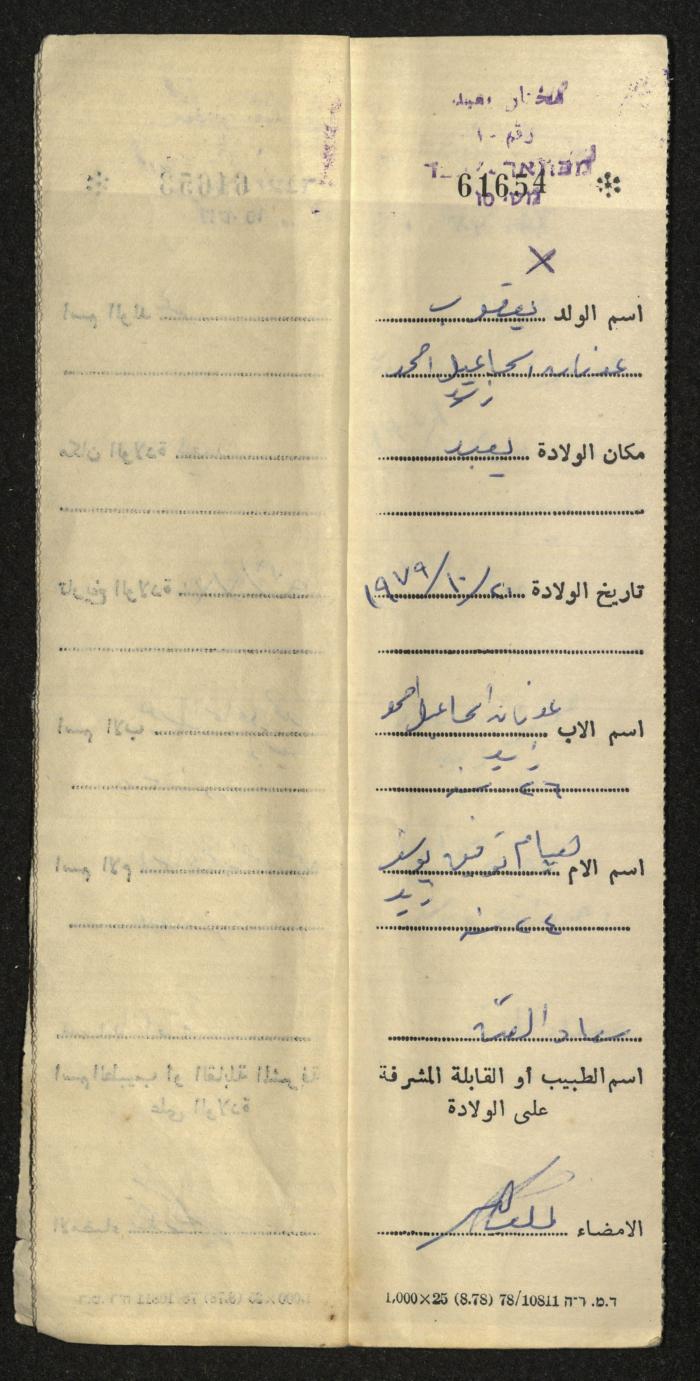 مختار يعبد
رقم ١٠
61654
מס׳ 10
اسم الولد يعقوب
عدنان اسماعيل احمد
زيد
مكان الولادة يعبد
تاريخ الولادة ٢١/١٠/١٩٧٩
اسم الاب عدنان اسماعيل احمد
زيد
٢٦ سنة
اسم الام هيام توفيق يوسف
زيد
٢٤ سنة
سعاد
اسم الطبيب أو القابلة المشرفة
على الولادة
الامضاء
1,000×25 (8.78) 78/10811 ד.מ. ר״ה